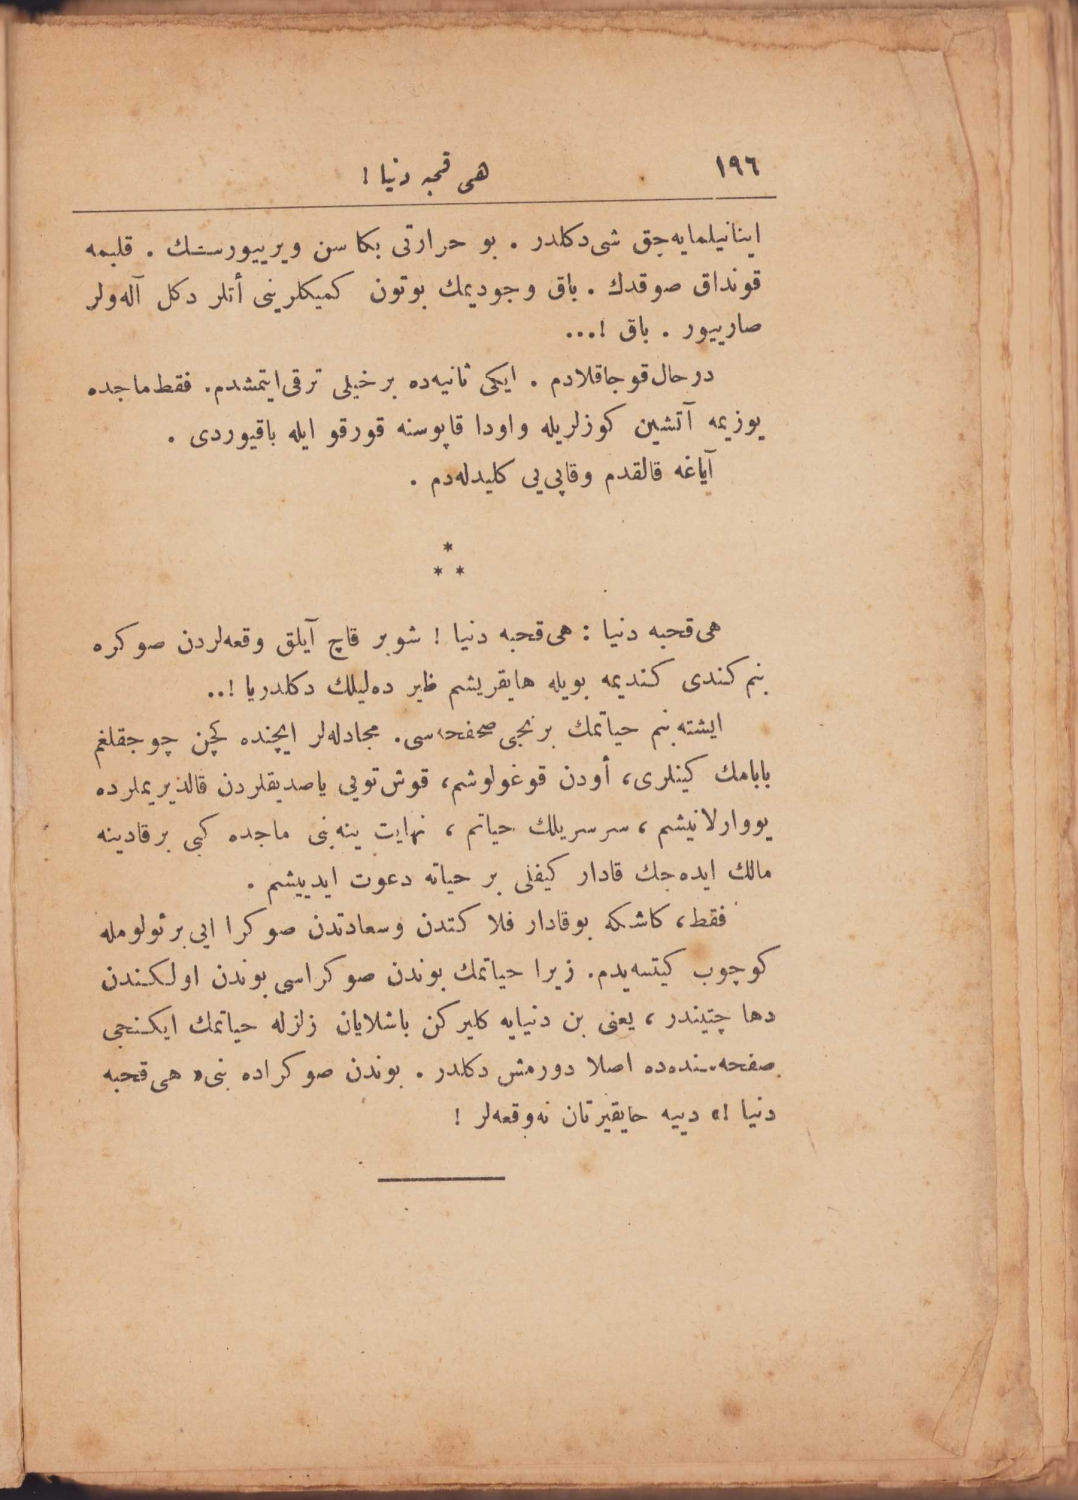 ١٩٦
هی قحبه دنیا !
اینانیلمایه‌جق شی دکلدر . بو حرارتی بکا سن ویرییورسنك . قلبمه
قونداق صوقدك . باق وجودیمك بوتون کمیکلرینی أتلر دکل آله‌ولر
صارییور . باق !...
درحال قوجاقلادم . ایکی ثانیه‌ده برخیلی ترقی ایتمشدم. فقط ماجده
یوزیمه آتشین کوزلریله واودا قاپوسنه قورقو ایله باقیوردی .
آیاغه قالقدم وقاپی‌یی کلیدله‌دم .
*
* *
هی قحبه دنیا : هی قحبه دنیا ! شو بر قاچ آیلق وقعه‌لردن صوکره
بنم کندی کندیمه بویله هایقریشم ده‌لیلك دکلدریا !..
ایشته بنم حیاتمك برنجی صحفه‌سی. مجادله‌لر ایچنده کچن چوجقلغم
بابامك کینلری، أودن قوغولوشم، قوش تویی یاصدیقلردن قالدیریملرده
یووارلانیشم ، سرسریلك حیاتم ، نهایت ینه بنی ماجده کبی برقادینه
مالك ایده‌جك قادار کیفلی بر حیاته دعوت ایدییشم .
فقط، کاشکه بوقادار فلاکتدن وسعادتدن صوکرا ایی برئولومله
کوچوب کیتسه‌یدم. زیرا حیاتمك بوندن صوکراسی بوندن اولکندن
دها چتیندر ، یعنی بن دنیایه کلیرکن باشلایان زلزله حیاتمك ایکنجی
صفحه‌سنده‌ده اصلا دورمش دکلدر . بوندن صوکراده بنی « هی قحبه
دنیا !» دییه حایقیرتان نه‌وقعه‌لر !